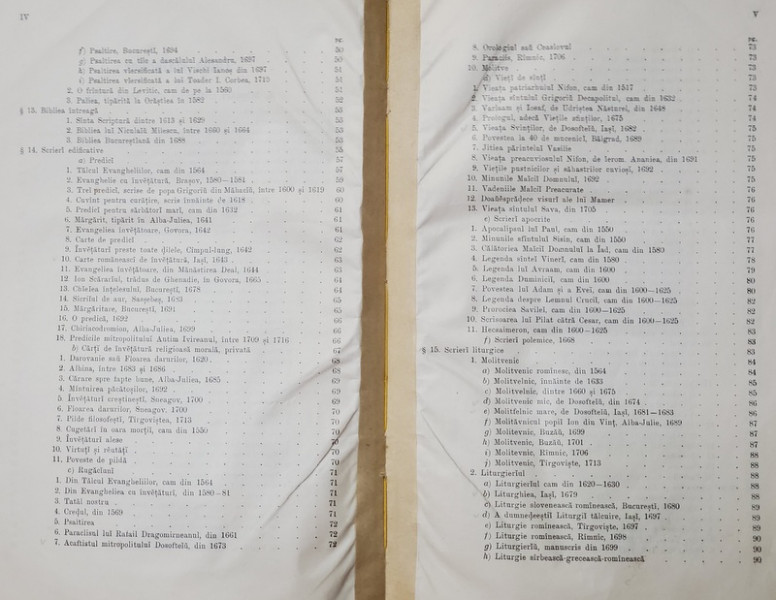 IV
pg.
f) Psaltire, Bucureștĭ, 1694 50
g) Psaltirea cu tîle a dascăluluĭ Alexandru, 1697 50
h) Psaltirea viersificată a luĭ Vischi Ianoș din 1697 51
i) Psaltirea viersificată a luĭ Teodor I. Corbea, 1710 51
2. O frîntură din Levitic, cam de pe la 1560 51
3. Paliea, tipărită la Orăștiea în 1582 52
§ 13. Bibliea întreagă 53
1. Sînta Scriptură dintre 1613 și 1629 53
2. Bibliea luĭ Niculaĭŭ Milescu, între 1660 și 1664 53
3. Bibliea Bucureșteană din 1688 55
§ 14. Scrierĭ edificative 55
a) Predicĭ 57
1. Tâlcul Evangheliilor, cam din 1564 57
2. Evanghelie cu învățătură, Brașov, 1580—1584 59
3. Treĭ predicĭ, scrise de popa Grigorie din Măhacĭŭ, între 1600 și 1619 60
4. Cuvînt pentru curățire, scris înnainte de 1618 60
5. Predicĭ pentru sărbătorĭ marĭ, cam din 1632 64
6. Mărgărit, tipărit în Alba-Juliea, 1641 61
7. Evangeliea învățătoare, Govora, 1642 61
8. Carte de predicĭ 62
9. Învățăturĭ preste toate ḑilele, Cîmpul-lung, 1642 62
10. Carte românească de învățătură, Iașĭ, 1643 63
11. Evangeliea învățătoare, din Mănăstirea Deal, 1644 63
12. Ion Scăraruĭ, tradus de Ghenadie, în Govora, 1665 64
13. Chiĭea înțelesuluĭ, Bucureștĭ, 1678 64
14. Sicriĭul de aur, Sassebeș, 1683 65
15. Mărgăritare, Bucureștĭ, 1691 65
16. O predică, 1692 66
17. Chiriacodromion, Alba-Juliea, 1699 66
18. Predicile mitropolituluĭ Antim Ivireanul, între 1709 și 1716 66
b) Cărțĭ de învățătură religioasă morală, privată 67
1. Darovanie saŭ Floarea darurilor, 1620 68
2. Albina, între 1683 și 1686 68
3. Cărare spre fapte bune, Alba-Juliea, 1685 69
4. Mîntuirea păcătoșilor, 1692 69
5. Învățăturĭ creștineștĭ, Sneagov, 1700 69
6. Floarea darurilor, Sneagov, 1700 70
7. Pilde filozofeștĭ, Tîrgoviștea, 1713 70
8. Cugetărĭ în oara morțiĭ, cam din 1550 70
9. Învățăturĭ alese 70
10. Virtuțĭ și răutățĭ 70
11. Poveste de pildă 70
c) Rugăcĭunĭ 71
1. Din Tâlcul Evangheliilor, cam din 1564 71
2. Din Evangheliea cu învățăturĭ, din 1580—81 71
3. Tatăl nostru 71
4. Credul, din 1569 71
5. Psaltirea 72
6. Paraclisul luĭ Ratail Dragomireanul, din 1661 72
7. Acaftistul mitropolituluĭ Dosofteĭŭ, din 1673 72
V
pg.
8. Orologiul saŭ Ceaslovul 73
9. Paraclis, Rîmnic, 1706 73
10. Molitve 73
d) Viețĭ de sfințĭ 73
1. Vieața patriarhuluĭ Nifon, cam din 1517 73
2. Vieața sfîntuluĭ Grigoriĭ Decapolitul, cam din 1632 74
3. Varlaam și Ioasaf, de Udriștea Năsturel, din 1648 74
4. Prologul, adecă Viețile sfinților, 1675 74
5. Vieața Svinților, de Dosofteĭŭ, Iașĭ, 1682 75
6. Povestea la 40 de mucenicĭ, Bălgrad, 1689 75
7. Jitiea părinteluĭ Vasilie 75
8. Vieața preacuviosuluĭ Nifon, de Ierom. Ananiea, din 1691 75
9. Viețile pustnicilor și săhastrilor cuvioșĭ, 1692 75
10. Minunile Maiciĭ Domnuluĭ, 1692 75
11. Vadeniile Maiciĭ Preacurate 76
12. Doaăḑăsprăḑece visurĭ ale luĭ Mamer 76
13. Vieața sfîntuluĭ Sava, din 1705 76
e) Scrierĭ apocrife 76
1. Apocalipsul luĭ Paul, cam din 1550 76
2. Minunile sfîntuluĭ Sisin, cam din 1550 77
3. Călătoriea Maiciĭ Domnuluĭ la Ĭad, cam din 1580 77
4. Legenda sîntei Vinerĭ, cam din 1580 78
5. Legenda luĭ Avraam, cam din 1600 79
6. Legenda Duminiciĭ, cam din 1600 80
7. Povestea luĭ Adam și a Eveĭ, cam din 1600—1625 80
8. Legenda despre Lemnul Cruciĭ, cam din 1600—1625 82
9. Prorociea Savileĭ, cam din 1600—1625 82
10. Scrisoarea luĭ Pilat cătră Cesar, cam din 1600—1625 82
11. Hecsaimeron, cam din 1600—1625 83
f) Scrierĭ polemice, 1668 83
§ 15. Scrierĭ liturgice 83
1. Molitvenic 84
a) Molitvenic romînesc, din 1564 84
b) Molitvelnic, înnainte de 1633 85
c) Molitvelnic, dintre 1660 și 1675 85
d) Molitvenic mic, de Dosofteĭŭ, din 1674 86
e) Molitfelnic mare, de Dosofteĭŭ, Iașĭ, 1681—1683 86
f) Molităvnicul popiĭ Ion din Vinț, Alba-Julie, 1689 87
g) Molitvenic, Buzăŭ, 1699 87
h) Molitvenic, Buzăŭ, 1701 87
i) Molitevnic, Rîmnic, 1706 88
j) Molitvenic, Tîrgoviște, 1713 88
2. Liturgieruĭ 88
a) Liturgieruĭ cam din 1620—1630 88
b) Liturghiea, Iașĭ, 1679 88
c) Liturgie slovenească romînească, Bucureștĭ, 1680 89
d) A dumneḑeeștiĭ Liturgiĭ tălcuire, Iașĭ, 1697 89
e) Liturgie romînească, Tîrgoviște, 1697 89
f) Liturgie romînească, Rîmnic, 1698 90
g) Liturgierĭŭ, manuscris din 1699 90
h) Liturgie sîrbească-grecească-romînească 90